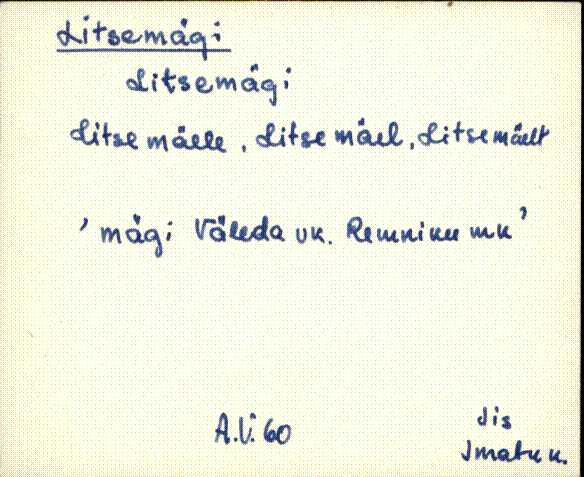 Litsemägi
Litsemägi
Litse mäele, Litse mäel, Litsemäelt
'mägi Väleda vk. Remniku mk'
A.V. 60
Jis
Jmatu k.